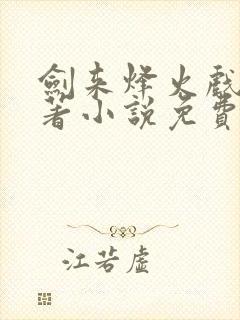 劍来烽火戲
著小說免費
江若虛